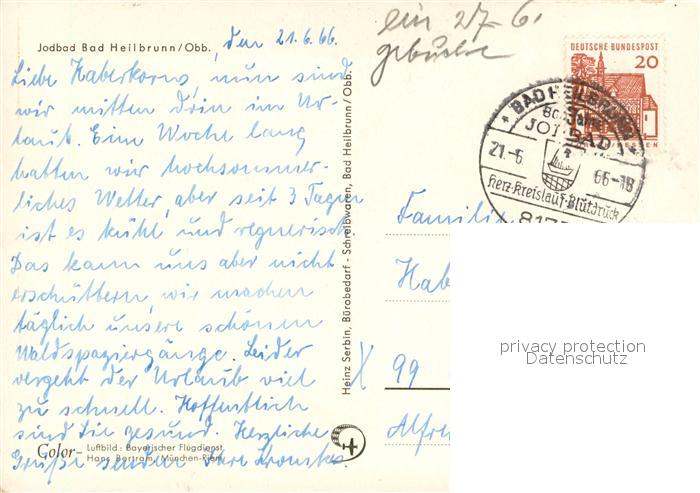 Jodbad Bad Heilbrunn/Obb.
, den 21.6.66.
Liebe Haberkorns, nun sind
wir mitten drin im Ur-
laub. Eine Woche lang
hatten wir hochsommer-
liches Wetter, aber seit 3 Tagen
ist es kühl und regnerisch.
Das kann uns aber nicht
erschüttern, wir machen
täglich unsere schönen
Waldspaziergänge. Leider
vergeht der Urlaub viel
zu schnell. Hoffentlich
sind Sie gesund. Herzliche
Grüße senden Ihre
Color- Luftbild: Bayerischer Flugdienst
Hans Bertram, München-Riem
Heinz Serbin, Bürobedarf - Schreibwaren, Bad Heilbrunn/Obb.
ein 27.6.
DEUTSCHE BUNDESPOST
20
HESSEN
BAD HEILBRUNN
JODBAD
21.-6. 66-18
Herz-Kreislauf-Blutdruck
817
Famili
Hab
X 99
Alfre
privacy protection
Datenschutz